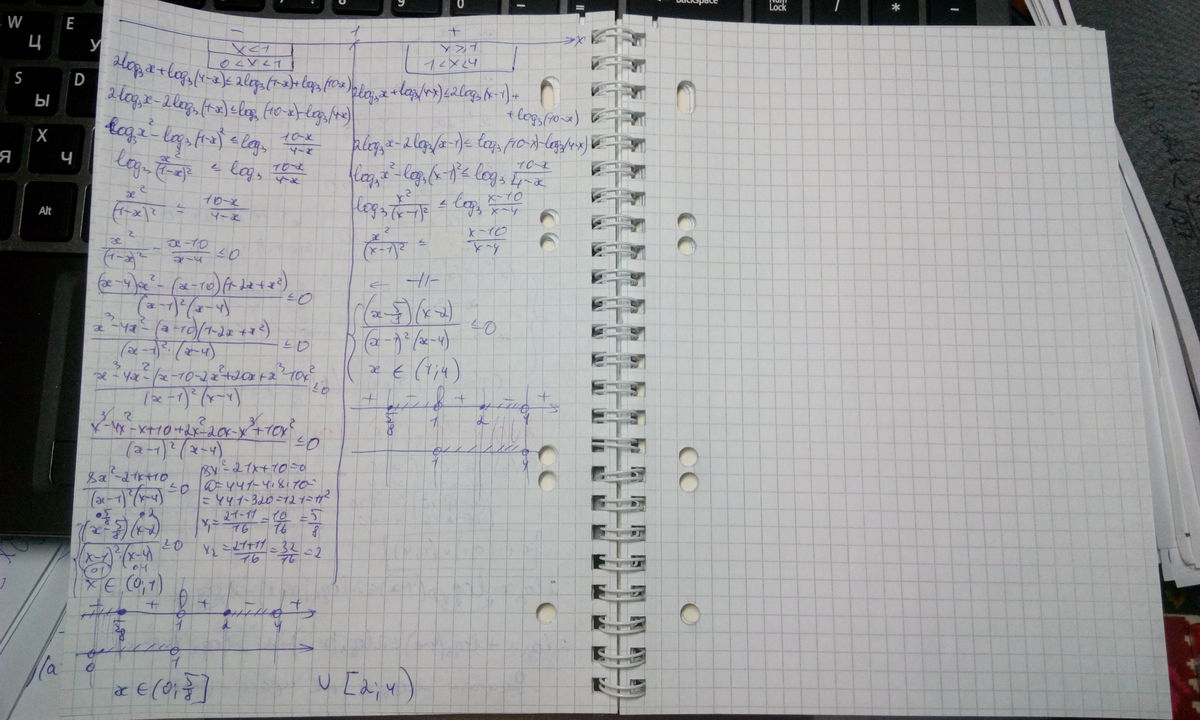 − 1 + x
x<1
0<x<1
2log₃x+log₃(4-x)≤2log₃(1-x)+log₃(10-x)
2log₃x-2log₃(1-x)≤log₃(10-x)-log₃(4-x)
log₃x²-log₃(1-x)²≤log₃ (10-x)/(4-x)
log₃ x²/(1-x)² ≤ log₃ (10-x)/(4-x)
x²/(1-x)² ≤ (10-x)/(4-x)
x²/(1-x)² - (x-10)/(x-4) ≤0
((x-4)x²-(x-10)(1-2x+x²))/((x-1)²(x-4)) ≤0
(x³-4x²-(x-10)(1-2x+x²))/((x-1)²·(x-4)) ≤0
(x³-4x²-(x-10-2x²+20x+x³-10x²)/((x-1)²(x-4)) ≤0
(x³-4x²-x+10+2x²-20x-x³+10x²)/((x-1)²(x-4)) ≤0
(8x²-21x+10)/((x-1)²(x-4)) ≤0
8x²-21x+10=0
D=441-4·8·10=
=441-320=121=11²
x₁=(21-11)/16=10/16=5/8
x₂=(21+11)/16=32/16=2
5/8 2
((x-5/8)(x-2))/((x-1)²·(x-4)) ≤0
x ∈ (0;1)
− + + − +
5/8 1 2 4
0 1
x ∈ (0; 5/8] ∪ [2;4)
x≥1
1<x<4
2log₃x+log₃(4-x)≤2log₃(x-1)+
+log₃(10-x)
2log₃x-2log₃(x-1)≤log₃(10-x)-log₃(4-x)
log₃x²-log₃(x-1)²≤log₃ (10-x)/(4-x)
log₃ x²/(x-1)² ≤ log₃ (x-10)/(x-4)
x²/(x-1)² ≤ (x-10)/(x-4)
← -//-
((x-5/8)(x-2))/((x-1)²(x-4)) ≤0
x ∈ (1;4)
+ − + − +
5/8 1 2 4
1 4
Ц У
Ы
Я Ч
Alt
W E
S D
X
Backspace
Num Lock
/ * −
8 9 0 − =